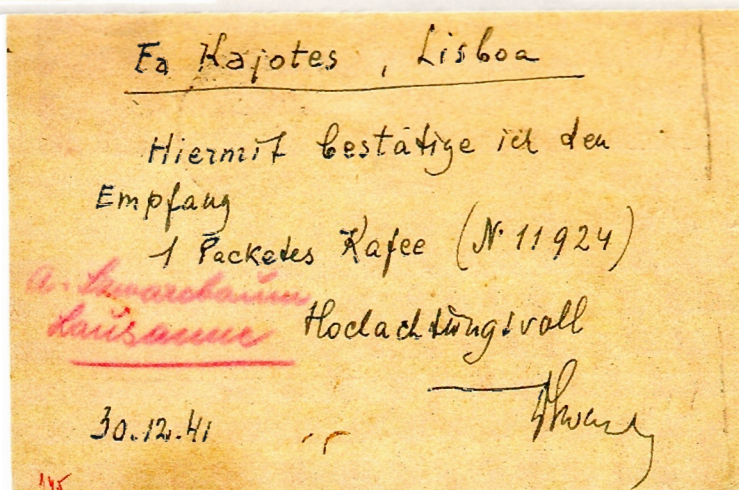 Fa Kajotes, Lisboa
Hiermit bestätige ich den
Empfang
1 Packetes Kafee (N. 11924)
A. Szwarcbaum
Lausanne
Hochachtungsvoll
30.12.41
145